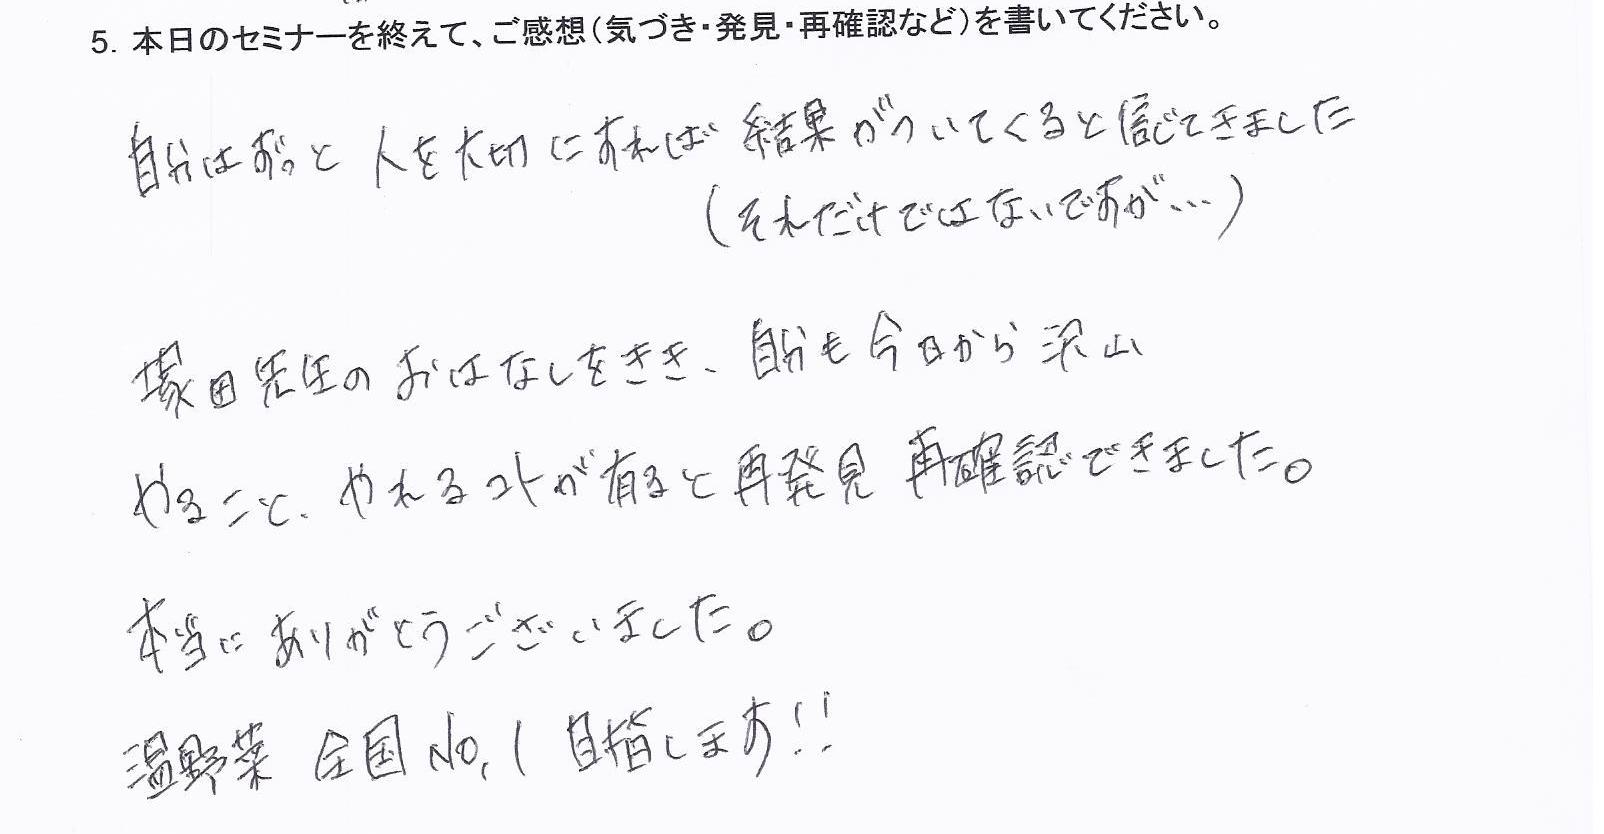 5. 本日のセミナーを終えて、ご感想（気づき・発見・再確認など）を書いてください。
自分はずっと 人を大切にすれば 結果がついてくると信じてきました
（それだけではないですが…）
塚田先生の おはなしをきき、自分も今日から 沢山
やること、やれるコトが有ると再発見 再確認できました。
本当にありがとうございました。
温野菜 全国No,1 目指します!!